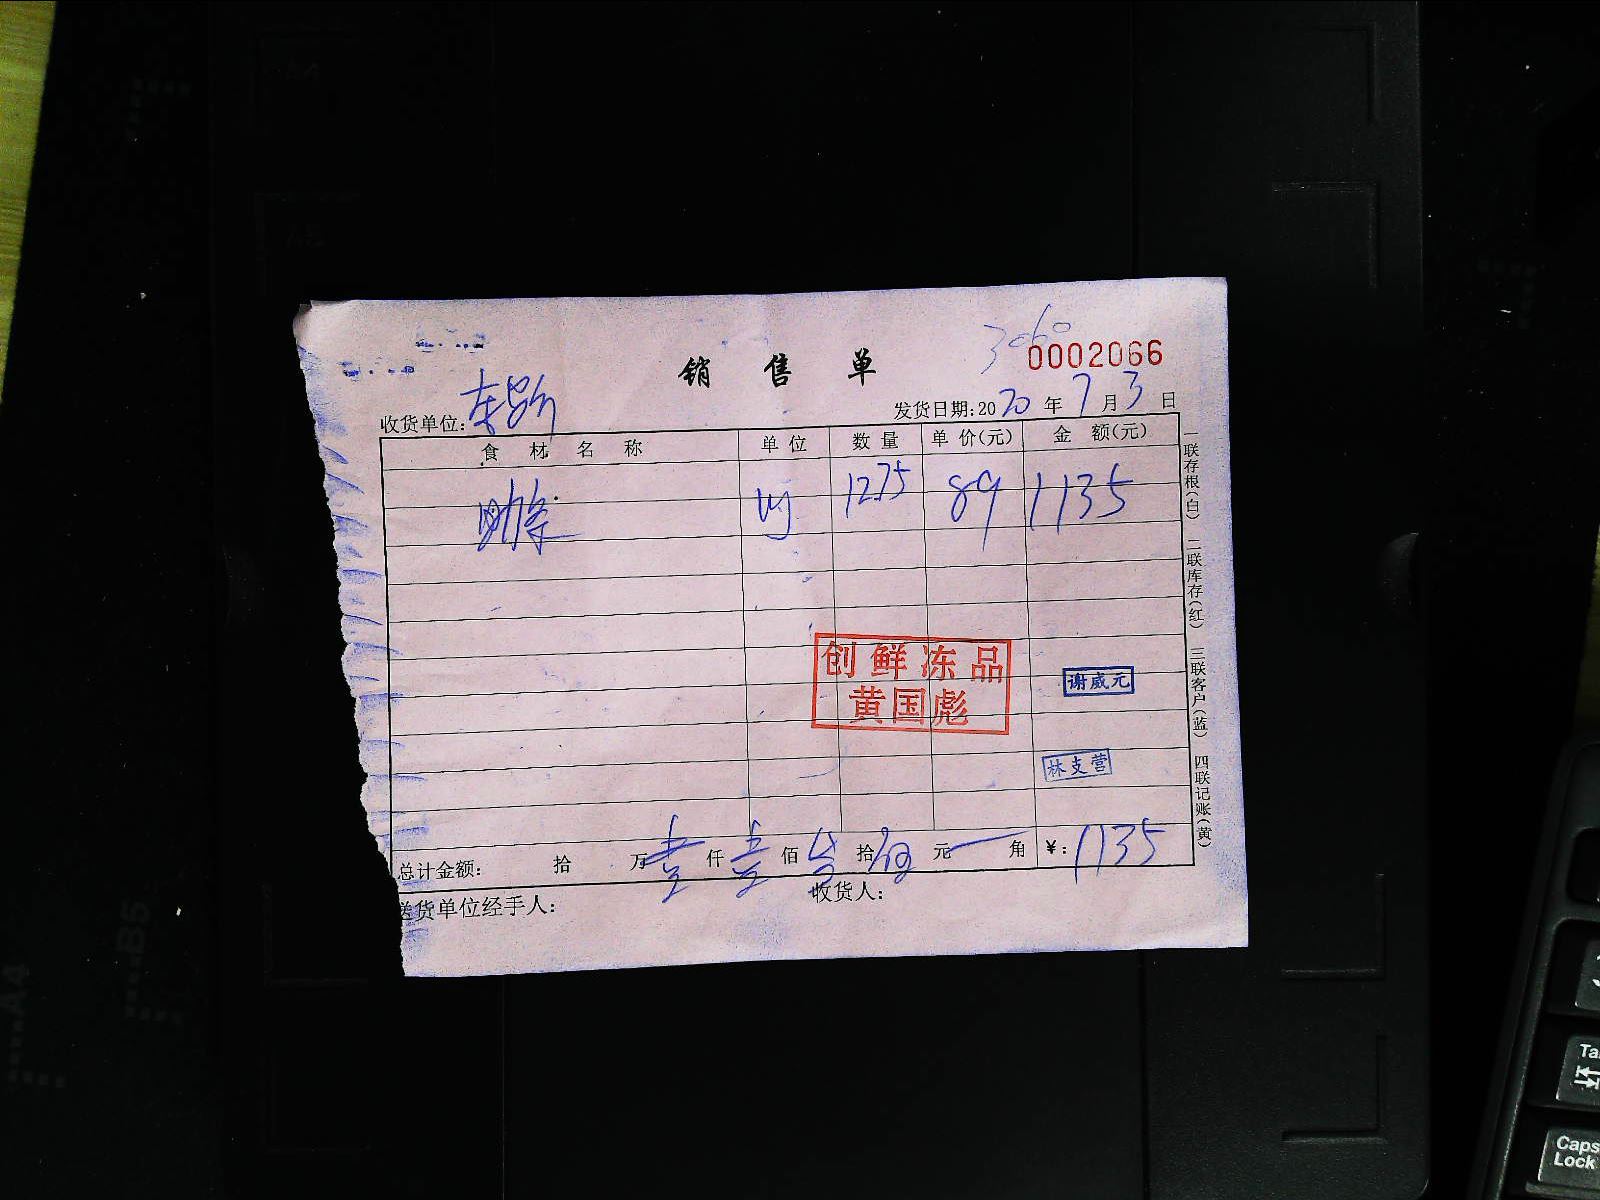 3060
销售单
0002066
收货单位:
发货日期:2020年7月3日
食材名称 单位 数量 单价(元) 金额(元)
肋条 12.75 89 1135
创鲜冻品
黄国彪
谢威元
林支营
总计金额: 拾 万壹仟壹佰叁拾伍元 角 ¥:1135
送货单位经手人: 收货人:
一联存根(白) 二联库存(红) 三联客户(蓝) 四联记账(黄)
A4
B5
Caps
Lock